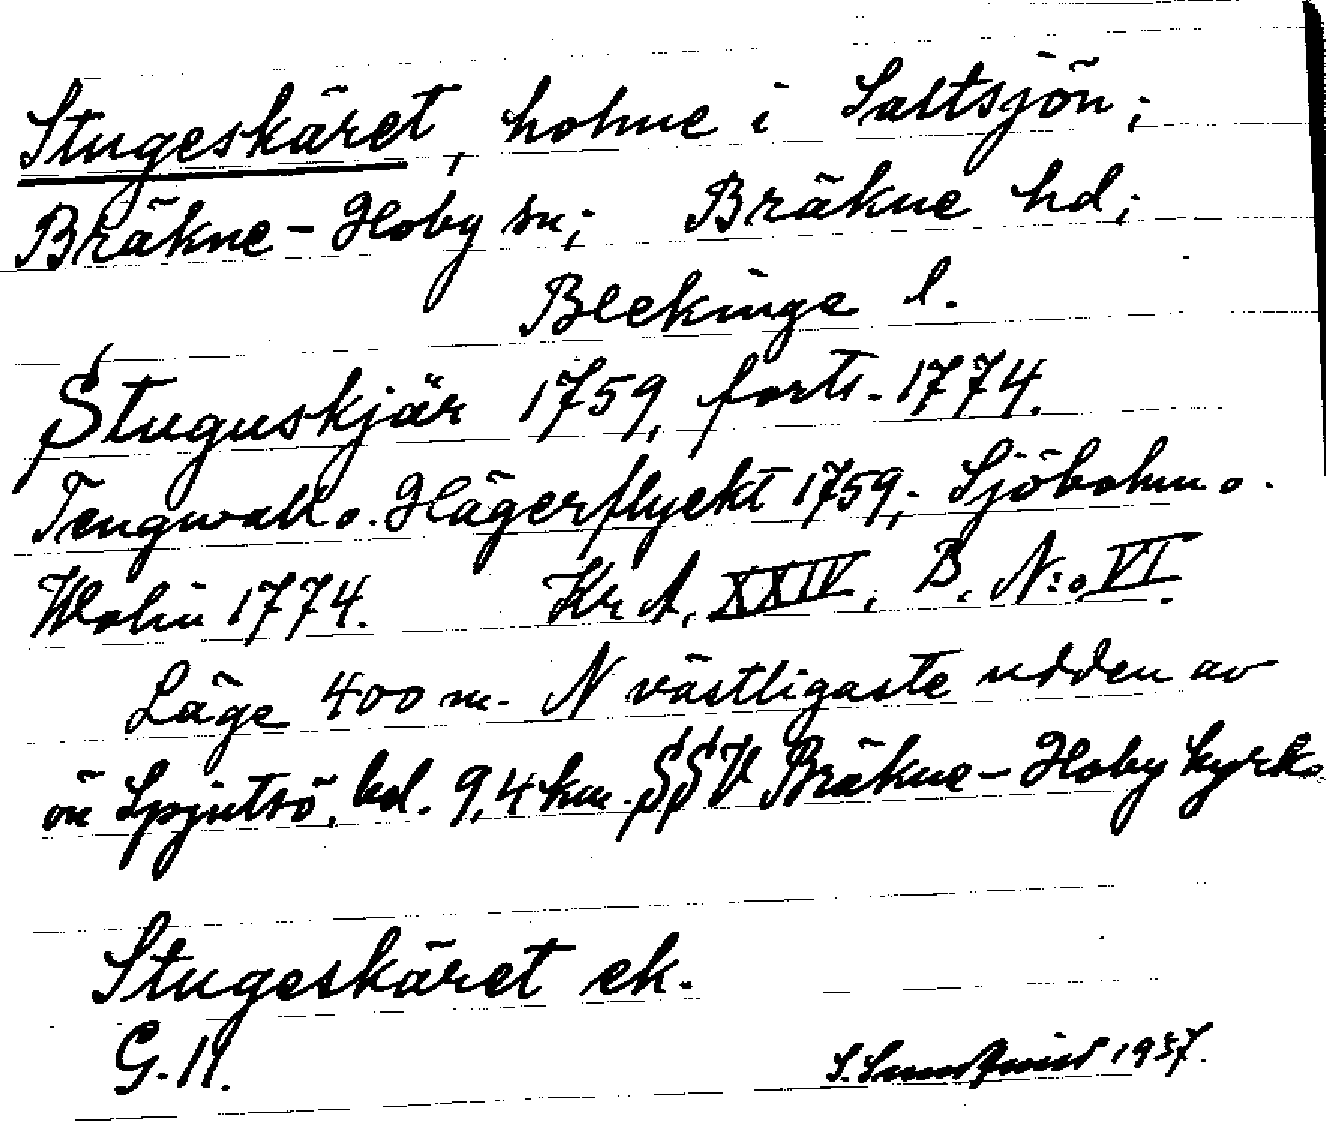 Stugeskäret, holme i Saltsjön;
Bräkne-Hoby sn; Bräkne hd;
Blekinge l.
Stuguskjär 1759, forts. 1774.
Tengwall o. Hägerflyckt 1759; Sjöbohm o.
Wolin 1774. Krt A, XXIV, B, N:o VI.
Läge 400 m. N västligaste udden av
ön Spjutsö, bel. 9,4 km. SSV Bräkne-Hoby kyrk.
Stugeskäret ek.
G. 11.
S. Sundquist 1937.